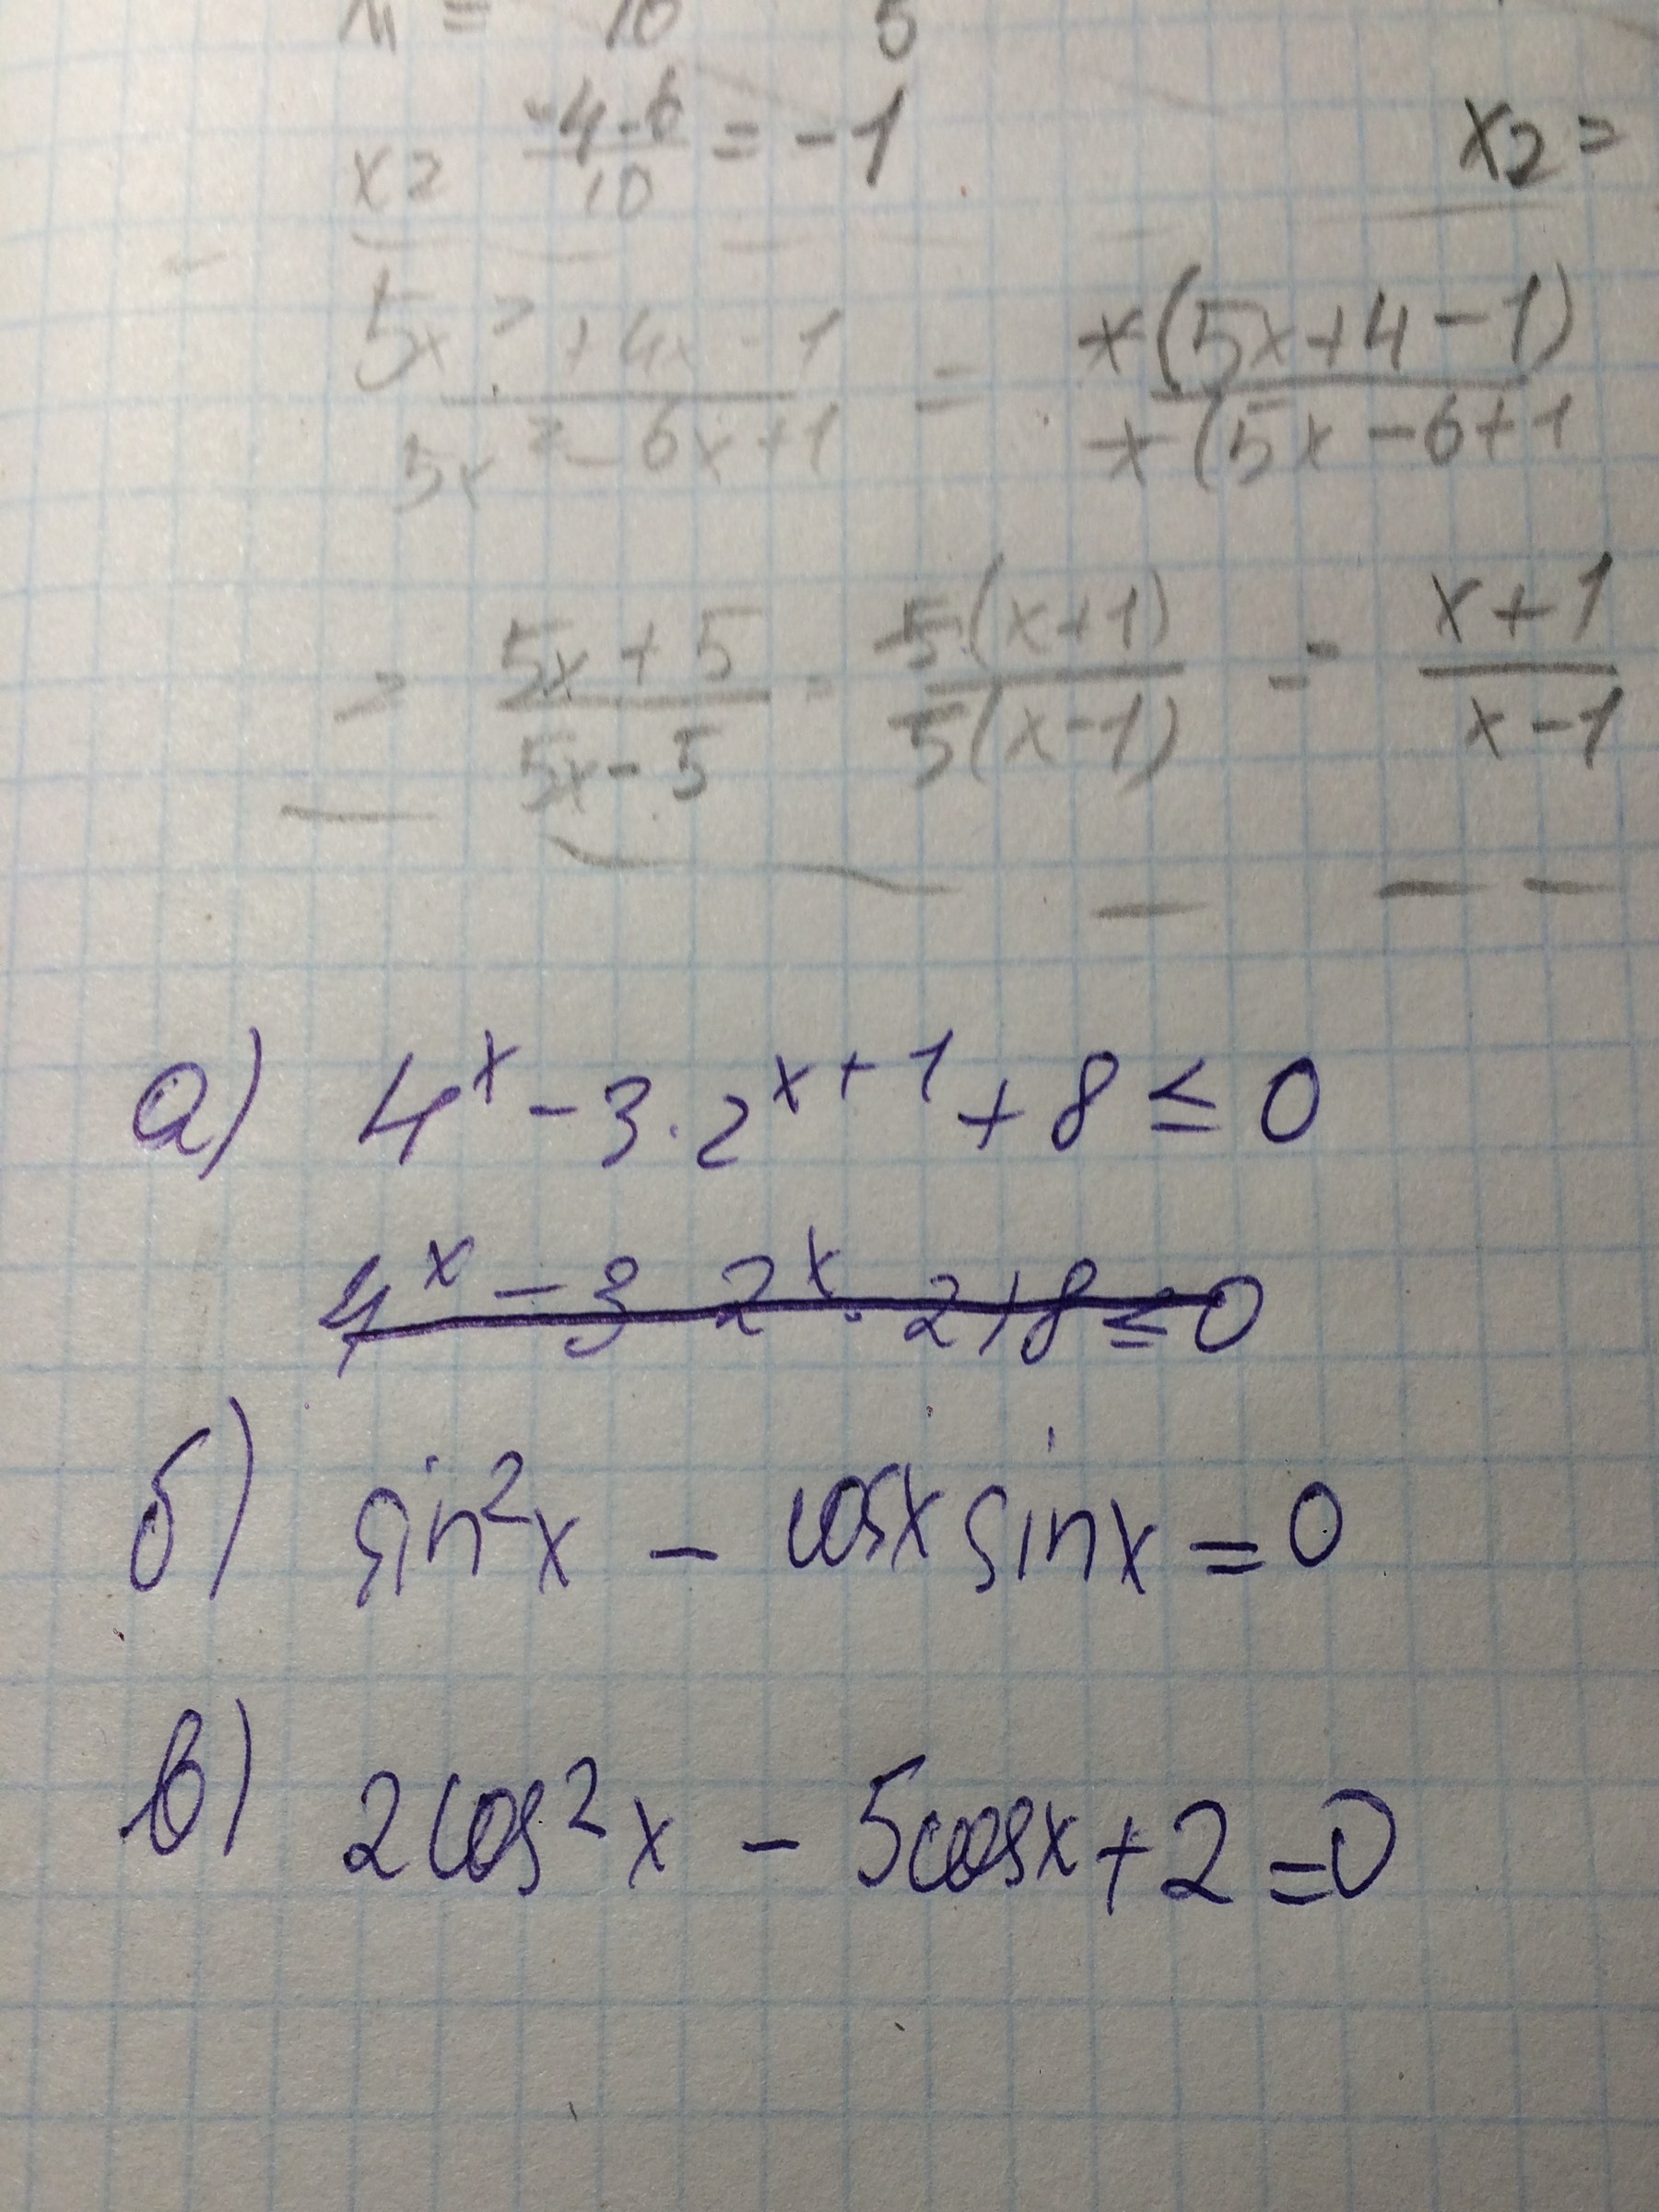 x2 -4-6/10 = -1 x2 =
5x² + 4x - 1 / 5x² - 6x + 1 = x(5x + 4 - 1) / x(5x - 6 + 1
= 5x + 5 / 5x - 5 = 5(x + 1) / 5(x - 1) = x + 1 / x - 1
а) 4^x - 3 · 2^(x+1) + 8 ≤ 0
4^x - 3 2^x · 2 + 8 ≤ 0
б) sin²x - cosx sinx = 0
в) 2cos²x - 5cosx + 2 = 0